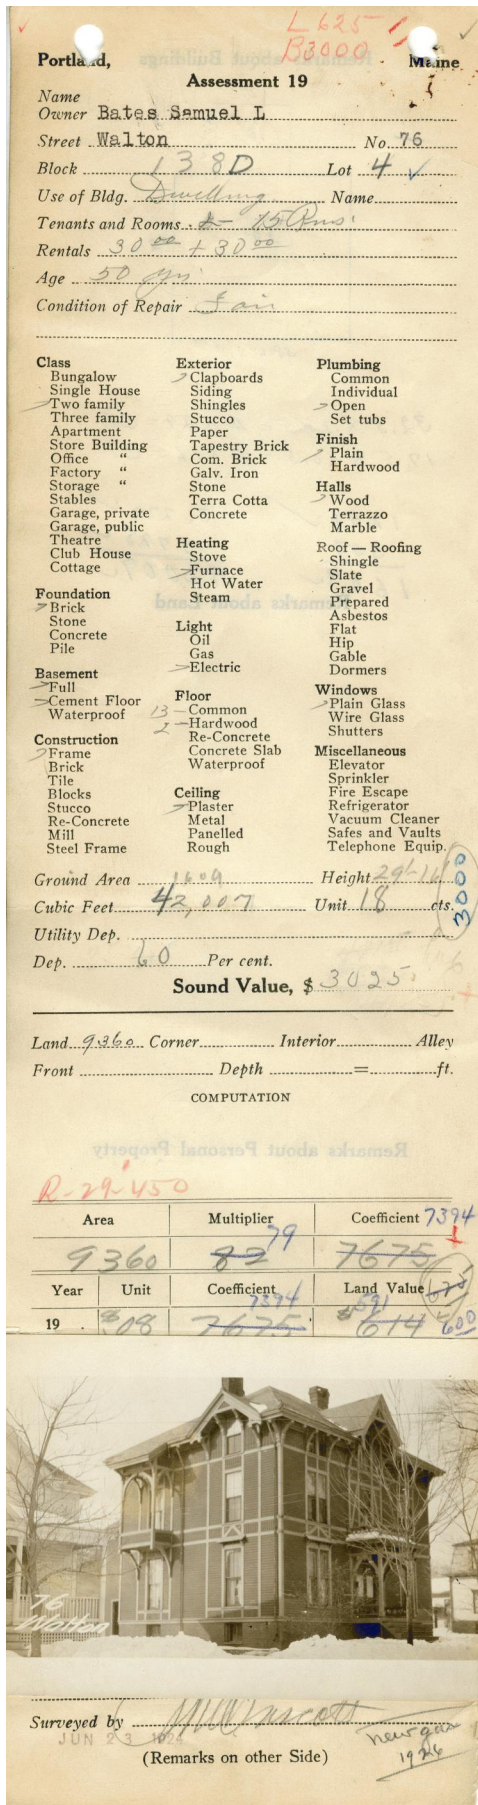 L 625
B 3000
Portland, Maine
Assessment 19
Name
Owner Bates Samuel L
Street Walton No. 76
Block 138D Lot 4 ✓
Use of Bldg. Dwelling Name
Tenants and Rooms 2- 15 Rms.
Rentals 30 00 + 30 00
Age 50 yrs
Condition of Repair Fair
Class
Bungalow
Single House
Two family
Three family
Apartment
Store Building
Office "
Factory "
Storage "
Stables
Garage, private
Garage, public
Theatre
Club House
Cottage
Foundation
Brick
Stone
Concrete
Pile
Basement
Full
Cement Floor
Waterproof
Construction
Frame
Brick
Tile
Blocks
Stucco
Re-Concrete
Mill
Steel Frame
Exterior
Clapboards
Siding
Shingles
Stucco
Paper
Tapestry Brick
Com. Brick
Galv. Iron
Stone
Terra Cotta
Concrete
Heating
Stove
Furnace
Hot Water
Steam
Light
Oil
Gas
Electric
Floor
13 - Common
2 - Hardwood
Re-Concrete
Concrete Slab
Waterproof
Ceiling
Plaster
Metal
Panelled
Rough
Plumbing
Common
Individual
Open
Set tubs
Finish
Plain
Hardwood
Halls
Wood
Terrazzo
Marble
Roof — Roofing
Shingle
Slate
Gravel
Prepared
Asbestos
Flat
Hip
Gable
Dormers
Windows
Plain Glass
Wire Glass
Shutters
Miscellaneous
Elevator
Sprinkler
Fire Escape
Refrigerator
Vacuum Cleaner
Safes and Vaults
Telephone Equip.
Ground Area 1609 Height 29'-16'
Cubic Feet 42,007 Unit 18 cts.
3000
Utility Dep.
Dep. 60 Per cent.
Sound Value, $ 3025.
Land 9360 Corner Interior Alley
Front Depth = ft.
COMPUTATION
Remarks about Personal Property
R-29-450
Area Multiplier Coefficient 7394
79
9360 82 7675
Year Unit Coefficient Land Value 675
7394 591
19 $ 08 7675 $ 614 600
76
Walton
Surveyed by
JUN 23 1924
(Remarks on other Side)
New gar
1926